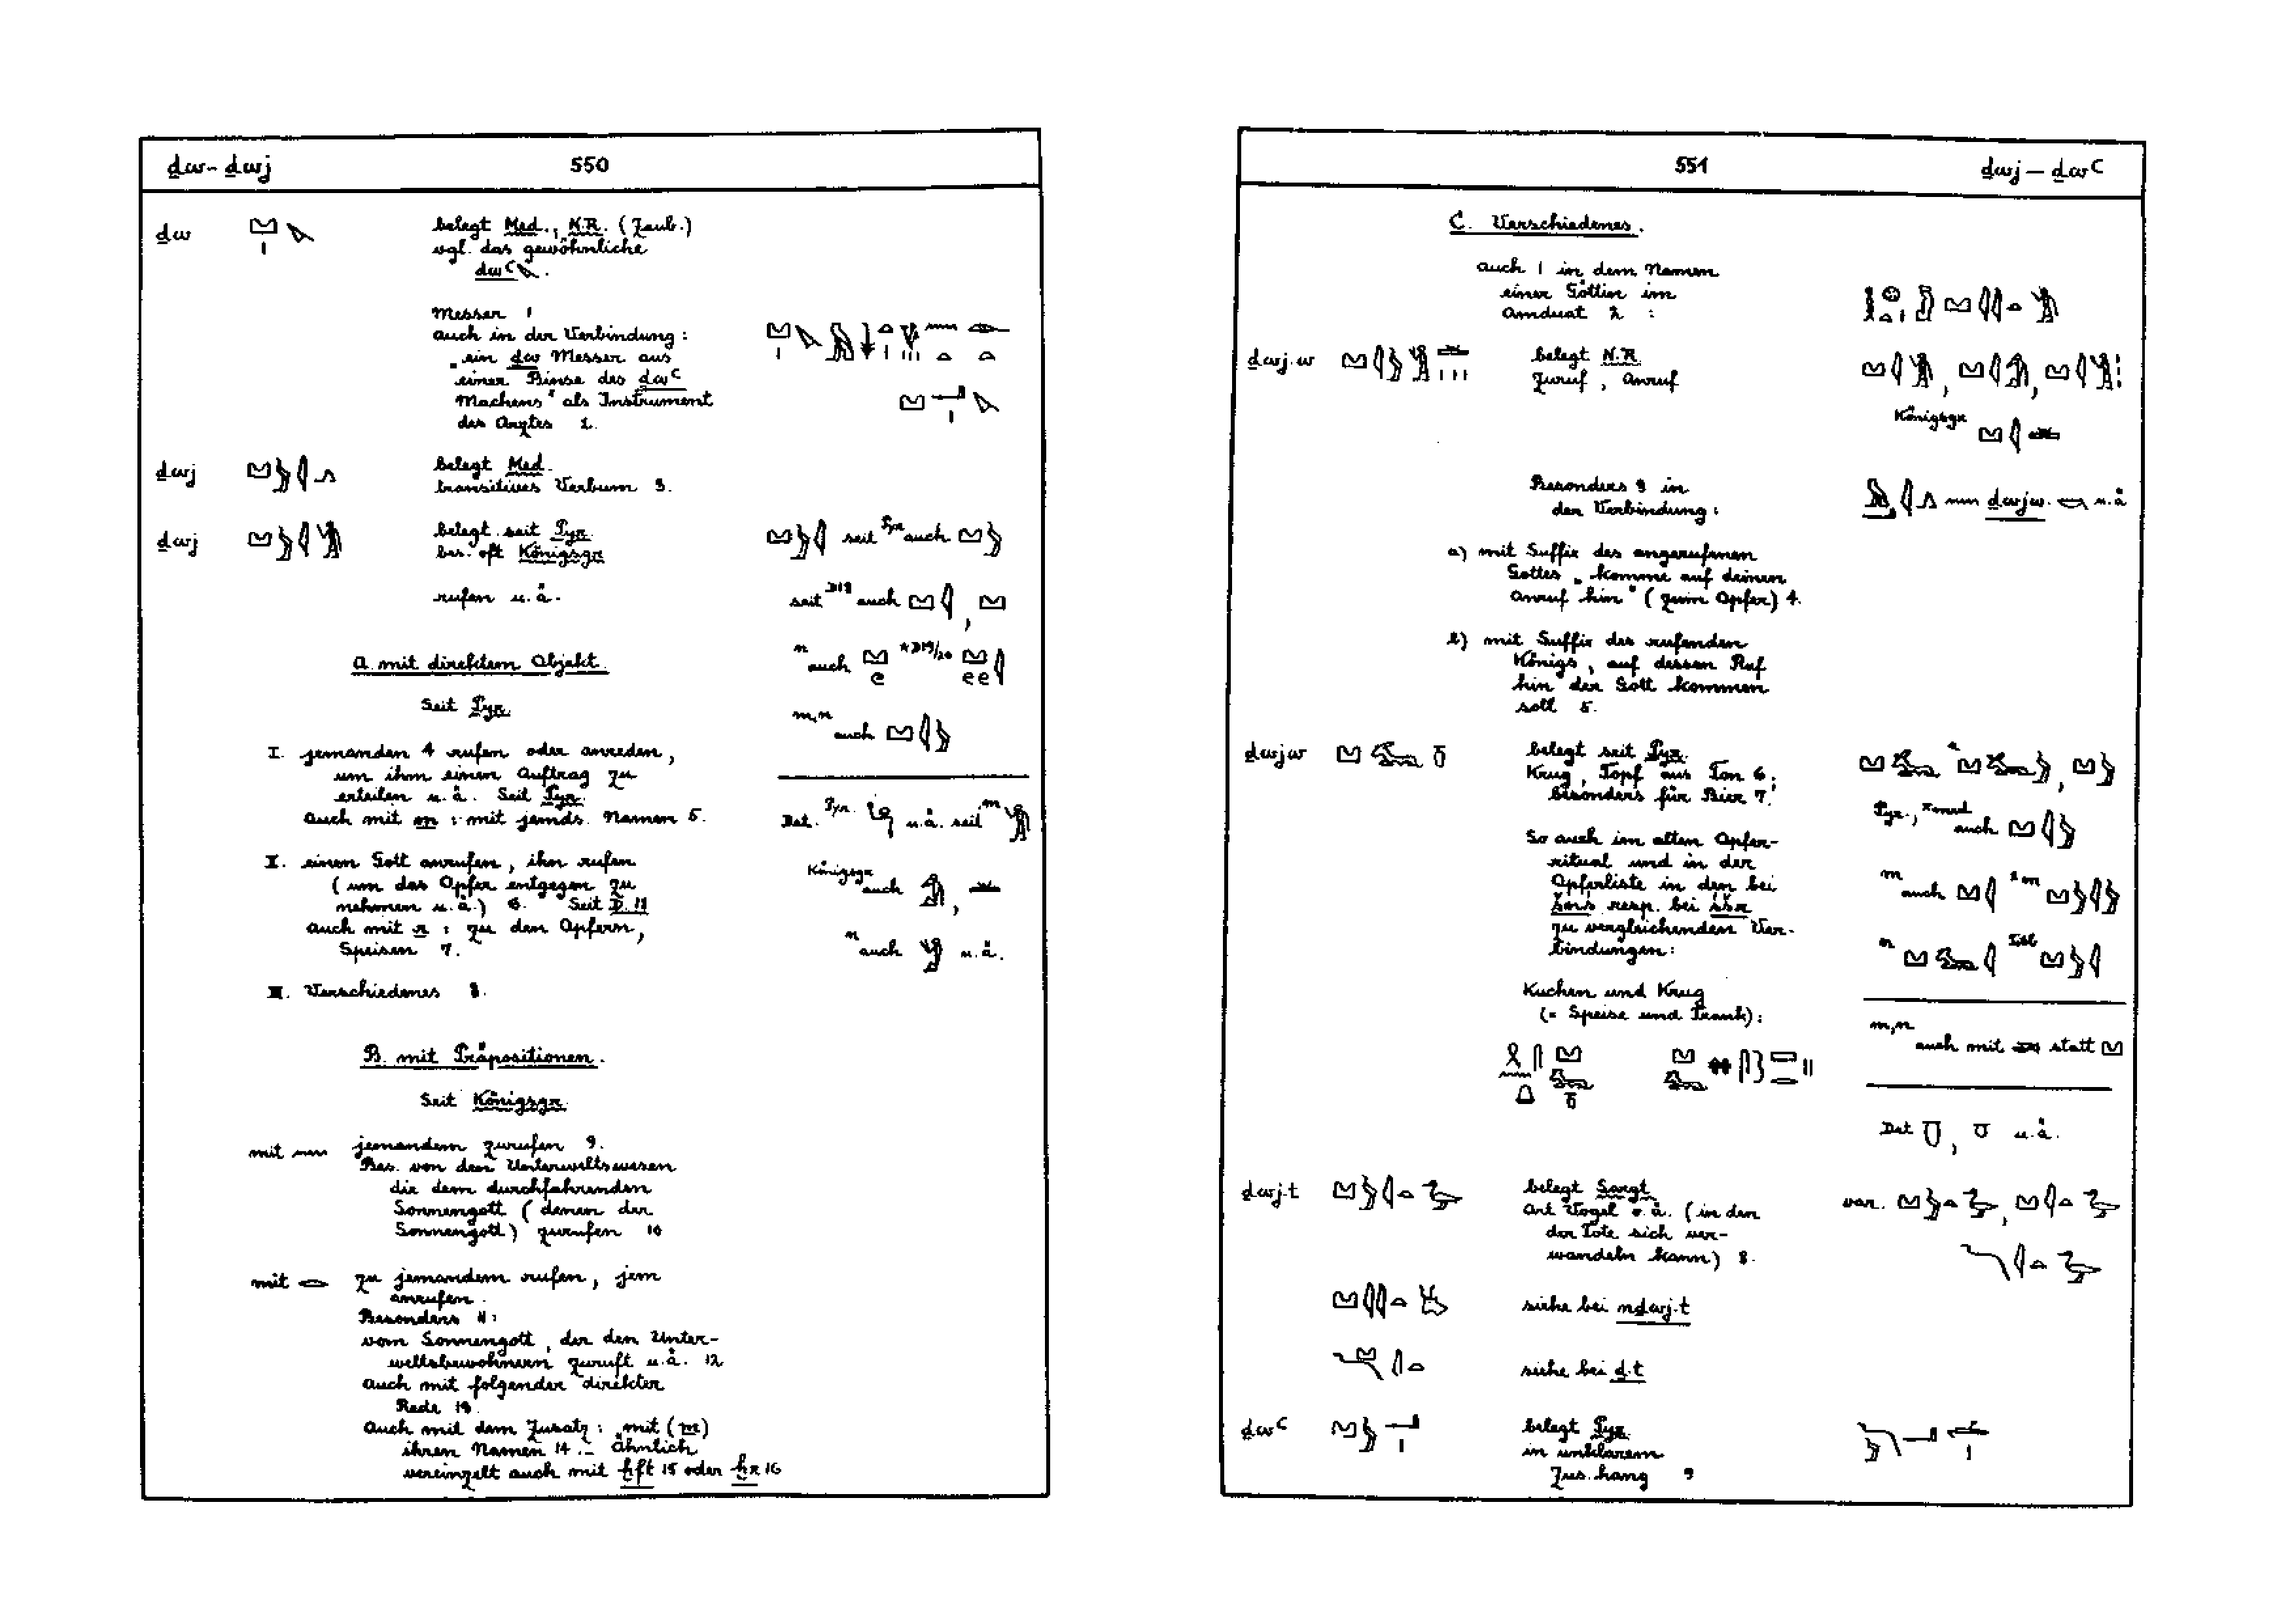 ḏw - ḏwj 550
ḏw
belegt Med., N.R. (Zaub.)
vgl. das gewöhnliche
ḏwꜥ.
Messer 1
auch in der Verbindung:
"ein ḏw Messer aus
einer Binse des ḏwꜥ
Machens" als Instrument
des Arztes 2.
ḏwj
belegt Med.
transitives Verbum 3.
ḏwj
belegt seit Pyr.
bes. oft Königsgr
seit Pyr auch
rufen u.ä.
seit D19 auch ,
n auch
A. mit direktem Objekt.
Seit Pyr.
m,n auch
I. jemanden 4 rufen oder anreden,
um ihm einen Auftrag zu
erteilen u.ä. Seit Pyr.
auch mit m : mit jemds. Namen 5.
Det. Pyr. u.ä. seit m
II. einen Gott anrufen, ihn rufen
(um das Opfer entgegen zu
nehmen u.ä.) 6. Seit D. 18
auch mit r : zu den Opfern,
Speisen 7.
Königsgr auch ,
n auch u.ä.
III. Verschiedenes 8.
B. mit Präpositionen.
Seit Königsgr
mit jemandem zurufen 9.
Bes. von den Unterweltswesen
die dem durchfahrenden
Sonnengott (denen der
Sonnengott) zurufen 10
mit zu jemandem rufen, jem
anrufen.
Besonders 11:
vom Sonnengott, der den Unter-
weltsbewohnern zuruft u.ä. 12
Auch mit folgender direkter
Rede 13.
Auch mit dem Zusatz: mit (m)
ihren Namen 14. – Ähnlich
vereinzelt auch mit ḫft 15 oder ḫr 16
551 ḏwj — ḏwꜥ
C. Verschiedenes.
auch 1 in dem Namen
einer Göttin im
Amduat 2 :
ḏwj.w
belegt N.R.
Zuruf, Anruf
Königsgr
Besonders 3 in
der Verbindung:
ḏwjw. u.ä
a) mit Suffix des angerufenen
Gottes "komme auf deinen
Anruf hin" (zum Opfer) 4.
b) mit Suffix des rufenden
Königs, auf dessen Ruf
hin der Gott kommen
soll 5.
ḏwjw
belegt seit Pyr.
Krug, Topf aus Ton 6;
besonders für Bier 7.
So auch im alten Opfer-
ritual und in der
Opferliste in den bei
šns resp. bei šsr
zu vergleichenden Ver-
bindungen:
Kuchen und Krug
(= Speise und Trank):
m auch
m,n auch mit statt
Det , u.ä.
ḏwj.t
belegt Sargt.
Art Vogel o.ä. (in den
der Tote sich ver-
wandeln kann) 8.
var. ,
siehe bei nḏwj.t
siehe bei ḏ.t
ḏwꜥ
belegt Pyr.
in unklarem
Zus.hang 9